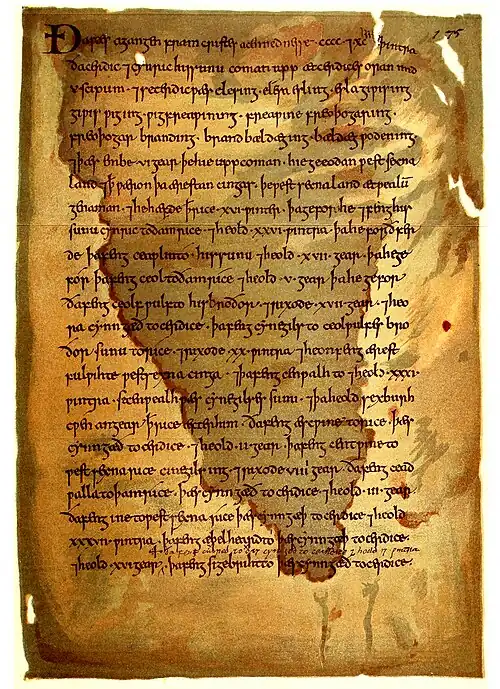 Đa ƿæs agangen fram cristes acennednesse .cccc. ⁊xc. ƿintra 175
þa cerdic ⁊ cynric his sunu coman upp æt cerdices oran mid
v scipum. ⁊se cerdic ƿæs elesing. elesa esling. esla gipising
gipis piging. pig freapining. freapine freoþogaring.
freoþogar branding. brand bældæging. bældæg podening.
⁊þæs ymbe .vi. gear þe hie upp coman. hie geeodan ƿest seaxna
land ⁊
gename. ⁊he hæfde þ rice .xvi. ƿintra. þa gefor he ⁊feng his
sunu cynric to ðam rice ⁊heold .xxvi. ƿintra. þa he forðferde
þa feng ceaplin to his sunu ⁊heold .xvii. gear. þa he gefor
þa feng ceol to ðam rice ⁊heold .v. gear. þa he gefor
ða feng ceolƿulf to his broðor. ⁊rixode .xvii. gear. ⁊heora
cyn gæð to cerdice. þa feng cynegils to ceolƿulfes broðor
sunu to rice. ⁊rixode .xx. ƿintra ⁊he onfeng ærest
fulƿihte ƿest seaxna cinga. ⁊þa feng cenƿalh to ⁊heold .xxxi.
ƿintra. se cenƿealh ƿæs cynegilses sunu. ⁊þa heold sexburh
cƿen an gear þ rice æfter him. ða feng æscƿine to rice. þæs
cyn gæð to cerdice. ⁊heold .ii. gear. þa feng centƿine to
ƿest seaxna rice cynegilsing. ⁊rixode .viiii. gear. ða feng ceadƿalla
to þam rice. þæs cyn gæð to cerdice ⁊heold .iii. gear.
ða feng ine to ƿest seaxna rice þæs cyn gæþ to cerdice ⁊heold
xxxvii. ƿintra. þa feng æþelheard to þæs cyn gæþ to cerdice.
⁊heold .xvi. gear. þa feng sigebriht to þæs cyn gæð to cerdice.